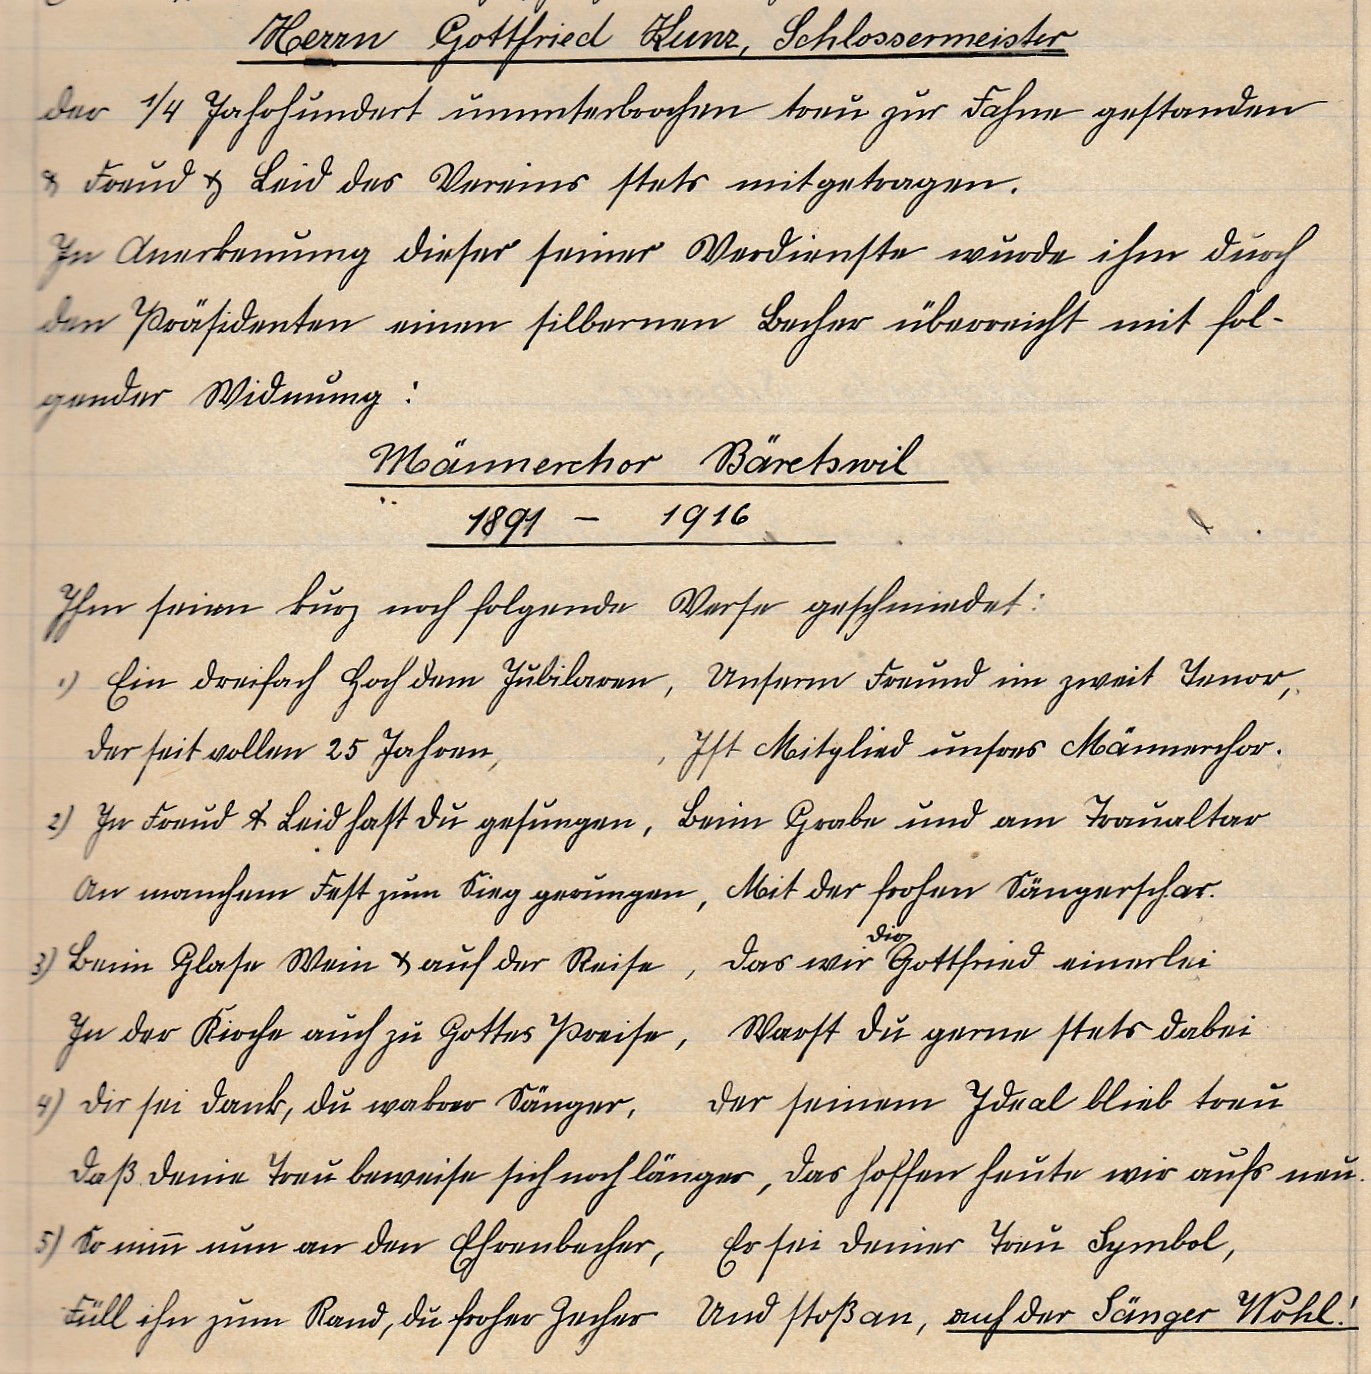 Herrn Gottfried Kunz, Schlossermeister
der 1/4 Jahrhundert ununterbrochen treu zur Fahne gestanden
& Freud & Leid des Vereins stets mitgetragen.
In Anerkennung dieser seiner Verdienste wurde ihm durch
den Präsidenten einen silbernen Becher überreicht mit fol-
gender Widmung:
Männerchor Bäretswil
1891 – 1916
Ihm seien kurz noch folgende Verse geschmiedet:
1) Ein dreifach Hoch dem Jubilaren, Unserm Freund im zweit Tenor,
der seit vollen 25 Jahren, Ist Mitglied unsres Männerchor.
2) In Freud & Leid hast du gesungen, Beim Grabe und am Traualtar
An manchem Fest zum Sieg gerungen, Mit der frohen Sängerschar.
3) Beim Glase Wein & auf der Reise, Das wir die Gottfried einerlei
In der Kirche auch zu Gottes Preise, Warst du gerne stets dabei
4) Dir sei Dank, du wakrer Sänger, der seinem Ideal blieb treu
Daß deine Treu beweise sich noch länger, das hoffen heute wir aufs neu.
5) So nim̅ nun an den Ehrenbecher, Er sei deiner Treu Symbol,
Füll ihn zum Rand, du froher Zecher Und stoß an, auf der Sänger Wohl!